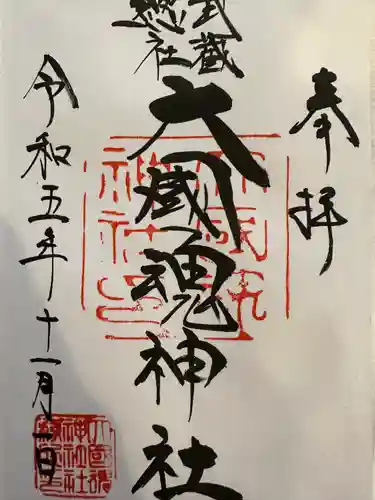 奉拝
武蔵
總社
大國魂神社
令和五年十一月一日